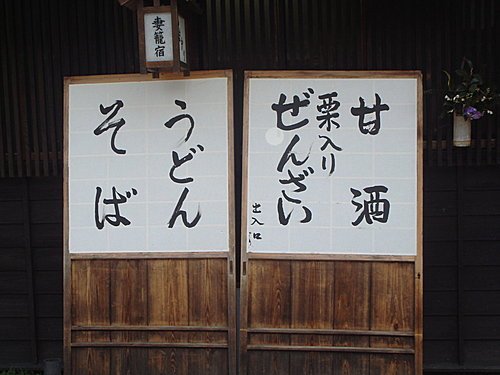 妻籠宿
甘酒
栗入り
ぜんざい
出入口
うどん
そば